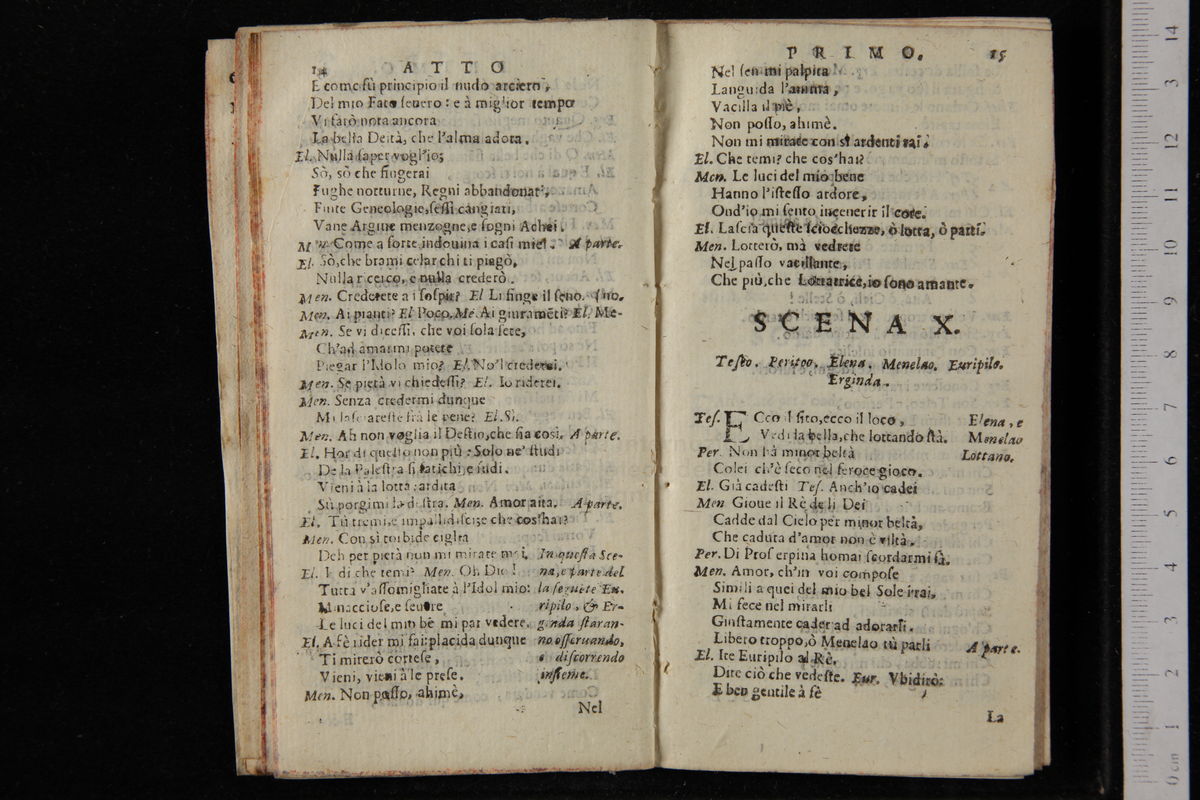 14 ATTO
E come fù principio il nudo arciero,
Del mio Fato seuero: e à miglior tempo
Vi farò nota ancora
La bella Deità, che l'alma adora.
El. Nulla saper vogl'io;
Sò, sò che fingerai
Fughe notturne, Regni abbandonati,
Finte Geneologie, sessi cangiati,
Vane Argiue menzogne, e sogni Achei.
Men. Come a sorte indouina i casi miei. A parte.
El. Sò, che brami celar chi ti piagò,
Nulla ricerco, e nulla crederò.
Men. Crederete a i sospiri? El Li finge il seno. [no.
Men. Ai pianti? El Poco. Me. Ai giuramẽti? El. Me-
Men. Se vi dicessi, che voi sola sete,
Ch'ad amarmi potete
Piegar l'Idolo mio? El. No'l crederei.
Men. Se pietà vi chiedessi? El. Io riderei.
Men. Senza credermi dunque
Mi lasciareste frà le pene? El. Sì.
Men. Ah non voglia il Destio, che sia così. A parte.
El. Hor di questo non più: Solo ne' studi
De la Palestra si fatichi, e sudi.
Vieni à la lotta: ardita
Sù porgimi la destra. Men. Amor aita. A parte.
El. Tù tremi, e impallidisci; e che cos'hai?
Men. Con sì torbide ciglia
Deh per pietà non mi mirate mai. In questa Sce-
El. E di che temi? Men. Oh Dio! na, e parte del
Tutta v'assomigliate à l'Idol mio: la seguẽte Eu-
Minacciose, e seuere ripilo, & Er-
Le luci del mio bẽ mi par vedere. ginda staran-
El. A fè rider mi fai: placida dunque no osseruando,
Ti mirerò cortese, e discorrendo
Vieni, vieni à le prese. insieme.
Men. Non posso, ahimè,
Nel
PRIMO. 15
Nel sen mi palpita
Languida l'anima,
Vacilla il piè,
Non posso, ahimè.
Non mi mirate con sì ardenti rai.
El. Che temi? che cos'hai?
Men. Le luci del mio bene
Hanno l'istesso ardore,
Ond'io mi sento incenerir il core.
El. Lascia queste sciocchezze, ò lotta, ò parti.
Men. Lotterò, mà vedrete
Nel passo vacillante,
Che più, che Lottatrice, io sono amante.
SCENA X.
Teseo. Peritoo. Elena. Menelao. Euripilo.
Erginda.
Tes. Ecco il sito, ecco il loco, Elena, e
Vedi la bella, che lottando stà. Menelao
Per. Non hà minor beltà Lottano.
Colei ch'è seco nel feroce gioco.
El. Già cadesti Tes. Anch'io cadei
Men Gioue il Rè de li Dei
Cadde dal Cielo per minor beltà,
Che caduta d'amor non è viltà.
Per. Di Proserpina homai scordarmi fà.
Men. Amor, ch'in voi compose
Simili a quei del mio bel Sole i rai,
Mi fece nel mirarli
Giustamente cader ad adorarli.
Libero troppo, ò Menelao tù parli A parte.
El. Ite Euripilo al Rè,
Dite ciò che vedeste. Eur. Vbidirò:
E ben gentile à fè
La